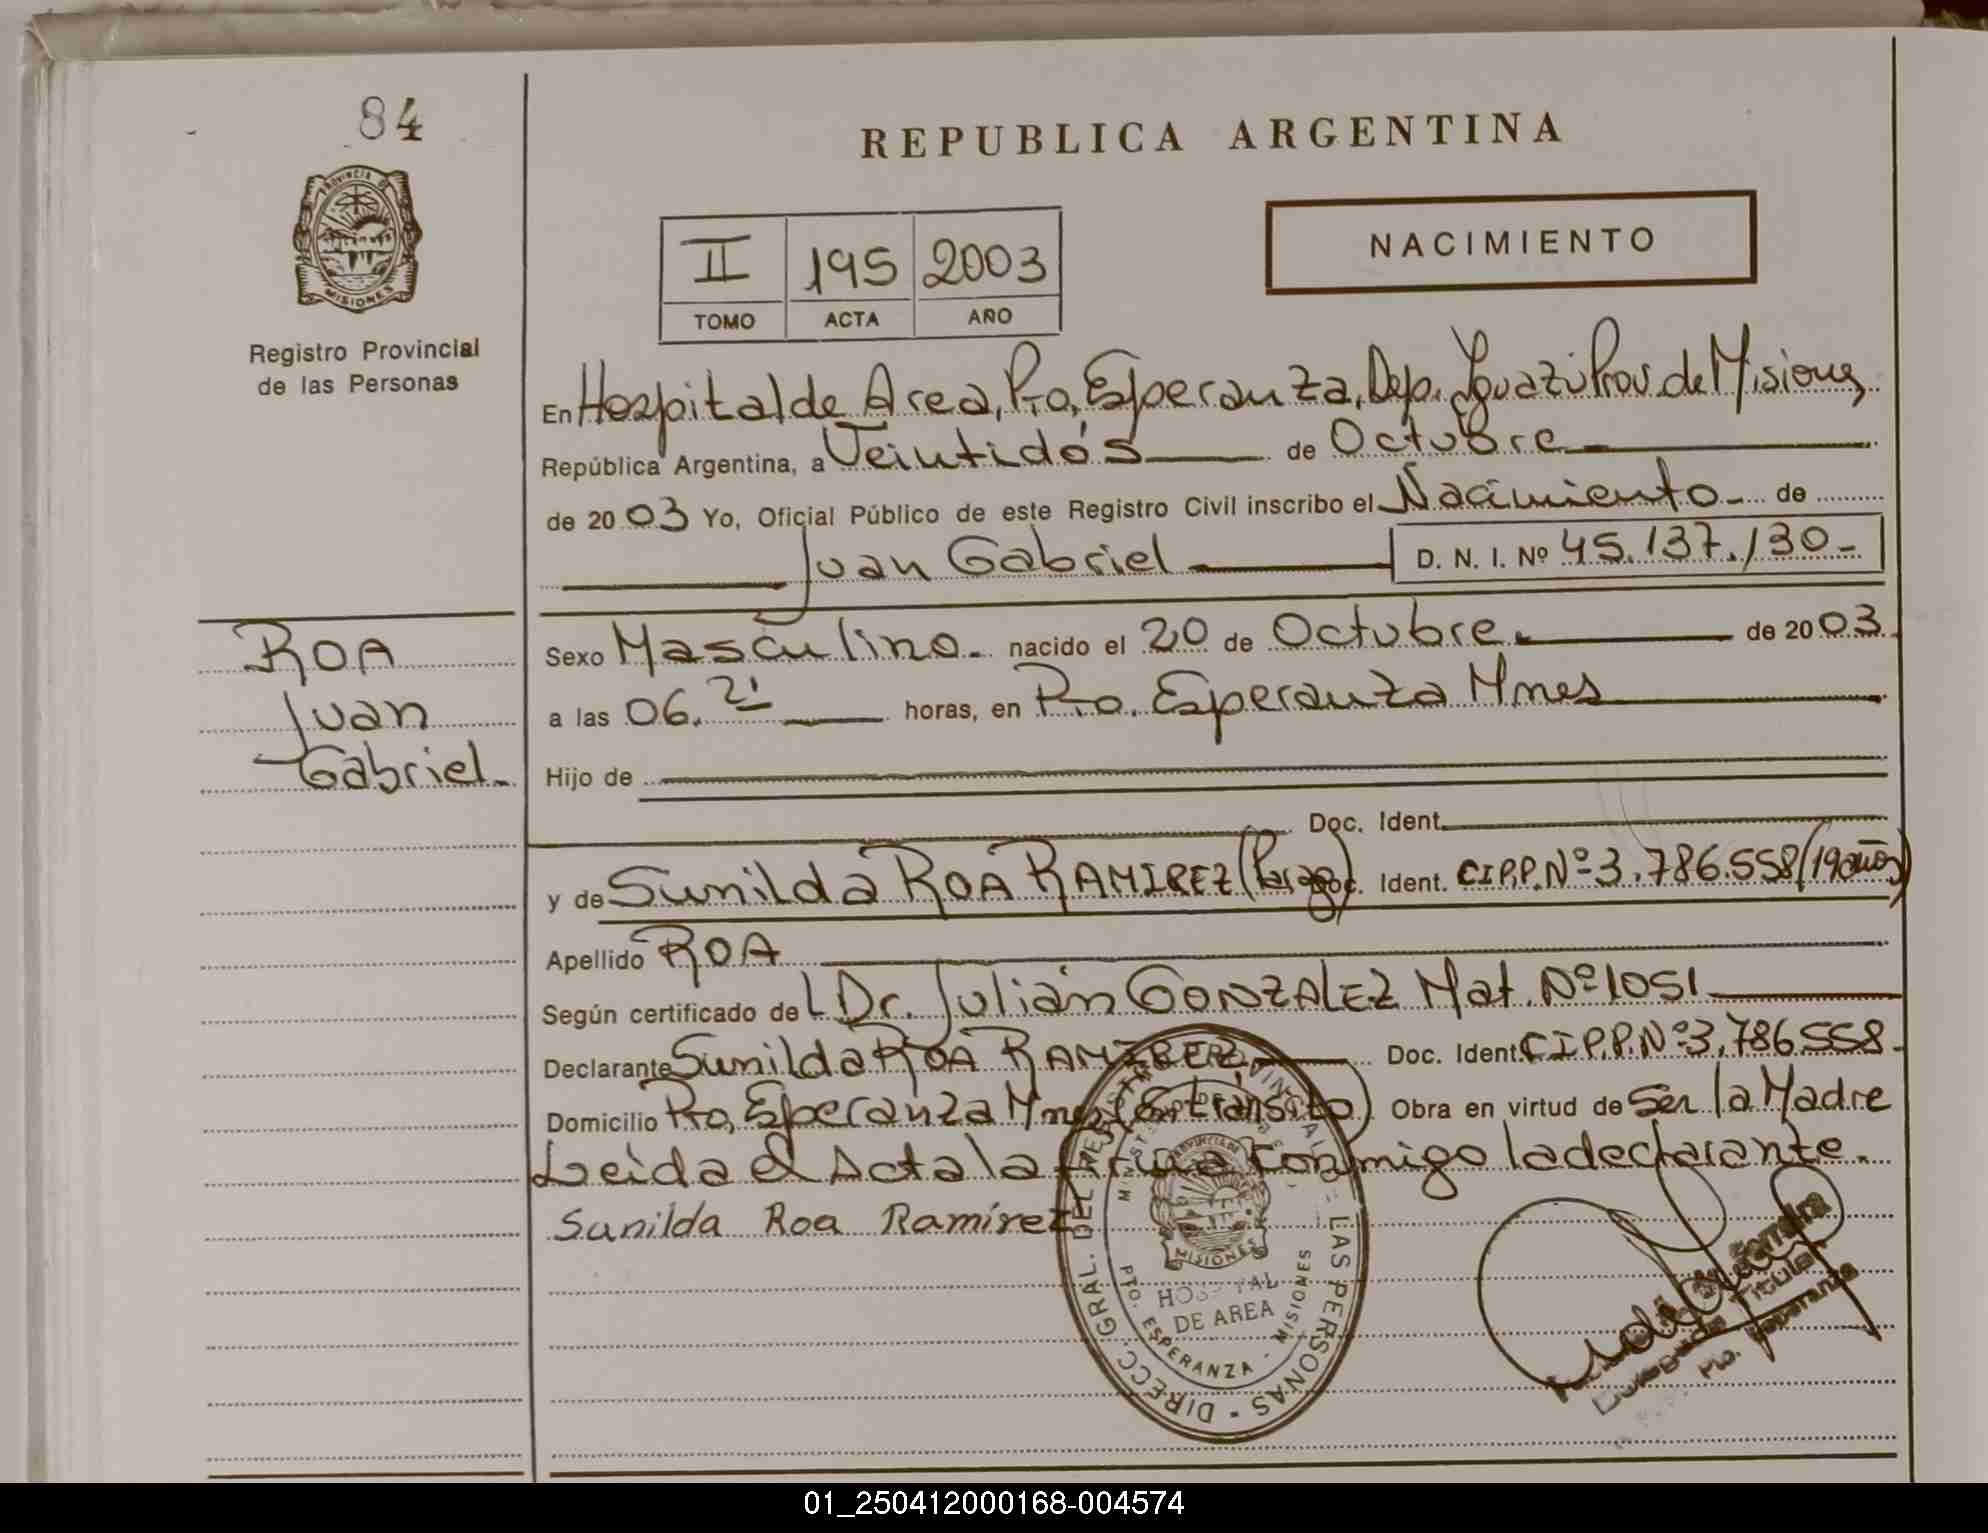 84
PROVINCIA DE
MISIONES
Registro Provincial
de las Personas
REPUBLICA ARGENTINA
II 195 2003
TOMO ACTA AÑO
NACIMIENTO
En Hospital de Area, Pto, Esperanza, Dep. Iguazú Prov. de Misiones
República Argentina, a Veintidós de Octubre
de 2003 Yo, Oficial Público de este Registro Civil inscribo el Nacimiento de
Juan Gabriel D. N. I. Nº 45.137.130-
ROA
Juan
Gabriel.
Sexo Masculino. nacido el 20 de Octubre. de 2003
a las 06.21 horas, en Pto. Esperanza Mnes
Hijo de
Doc. Ident.
y de Sunilda ROA RAMIREZ (Parag) Doc. Ident. CIP.P. Nº 3.786.558 (19 años)
Apellido ROA
Según certificado de L Dr. Julián GONZALEZ Mat. Nº 1051
Declarante Sunilda ROA RAMIREZ. Doc. Ident. CIP.P. Nº 3.786.558
Domicilio Pto, Esperanza Mnes (En tránsito) Obra en virtud de Ser la Madre
Leida el Acta la firma conmigo la declarante.
Sunilda Roa Ramírez
DIRECC. GRAL. DEL REGISTRO PROVINCIAL DE LAS PERSONAS
PROVINCIA DE
MISIONES
HOSPITAL
DE AREA
PTO. ESPERANZA - MISIONES
Titular
Pto. Esperanza
01_250412000168-004574